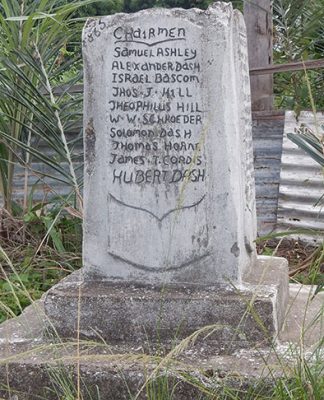 Chairmen
Samuel Ashley
Alexander Dash
Israel Bascom
Thos. J. Hill
Theophilus Hill
W. W. Schroeder
Solomon Dash
Thomas Hornt
James. T. Cordis
Hubert Dash